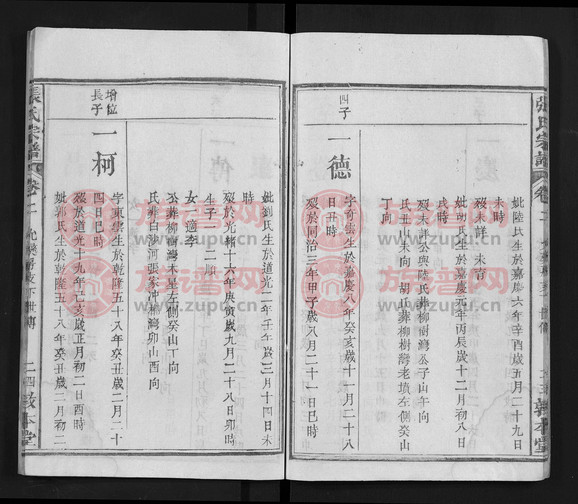 張氏宗譜 卷二
敦本堂
妣陸氏生於嘉慶六年辛酉歲五月二十九日
未時
歿未詳 未吉
妣胡氏生於嘉慶元年丙辰歲十二月初八日
戌時
歿未詳公與陸氏葬柳樹灣公子山午向
氏丑山未向 胡氏葬柳樹灣老墳左側癸山
丁向
四子
一德
字奇雲生於嘉慶八年癸亥歲十一月二十八
日丑時
歿於同治三年甲子歲八月二十一日巳時
妣劉氏生於道光二年壬午歲三月十四日未
時
歿於光緒十六年庚寅歲九月二十八日卯時
生子一 二順
女一適李
公葬柳樹灣木星左側癸山丁向
氏葬白沙河張家冲柳灣卯山酉向
增位
長子
一柯
字東雲生於乾隆五十八年癸丑歲二月二十
四日巳時
歿於道光十九年己亥歲正月初二日酉時
妣郭氏生於乾隆五十八年癸丑歲三月初二
張氏宗譜 卷二
下世傳
二四 敦本堂
族譜网
www.zupu.cn